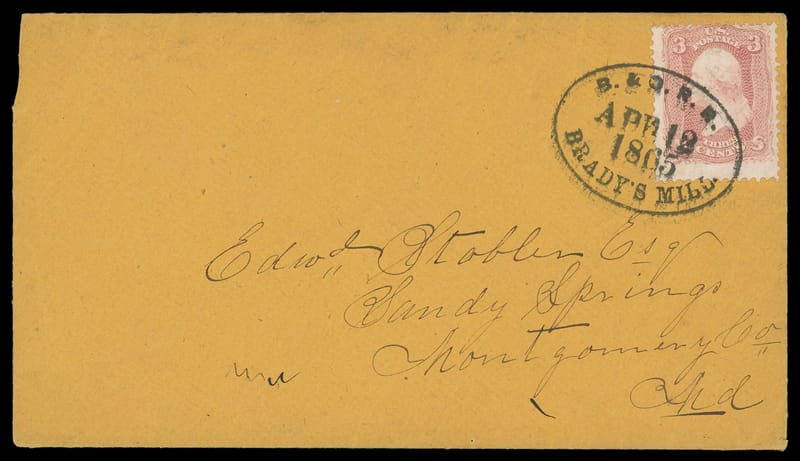 U.S.
POSTAGE
3 3
THREE
CENTS
B. & O. R. R.
APR 12
1865
BRADY'S MILL.
Edwd Stabler Esq
Sandy Springs
Montgomery Co
Md